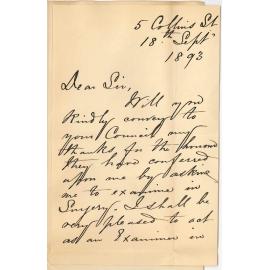 5 Collins St
18th Sept
1893
Dear Sir,
Will you
kindly convey to
your Council my
thanks for the honour
they have conferred
upon me by asking
me to examine in
Surgery. I shall be
very pleased to act
as an Examiner in